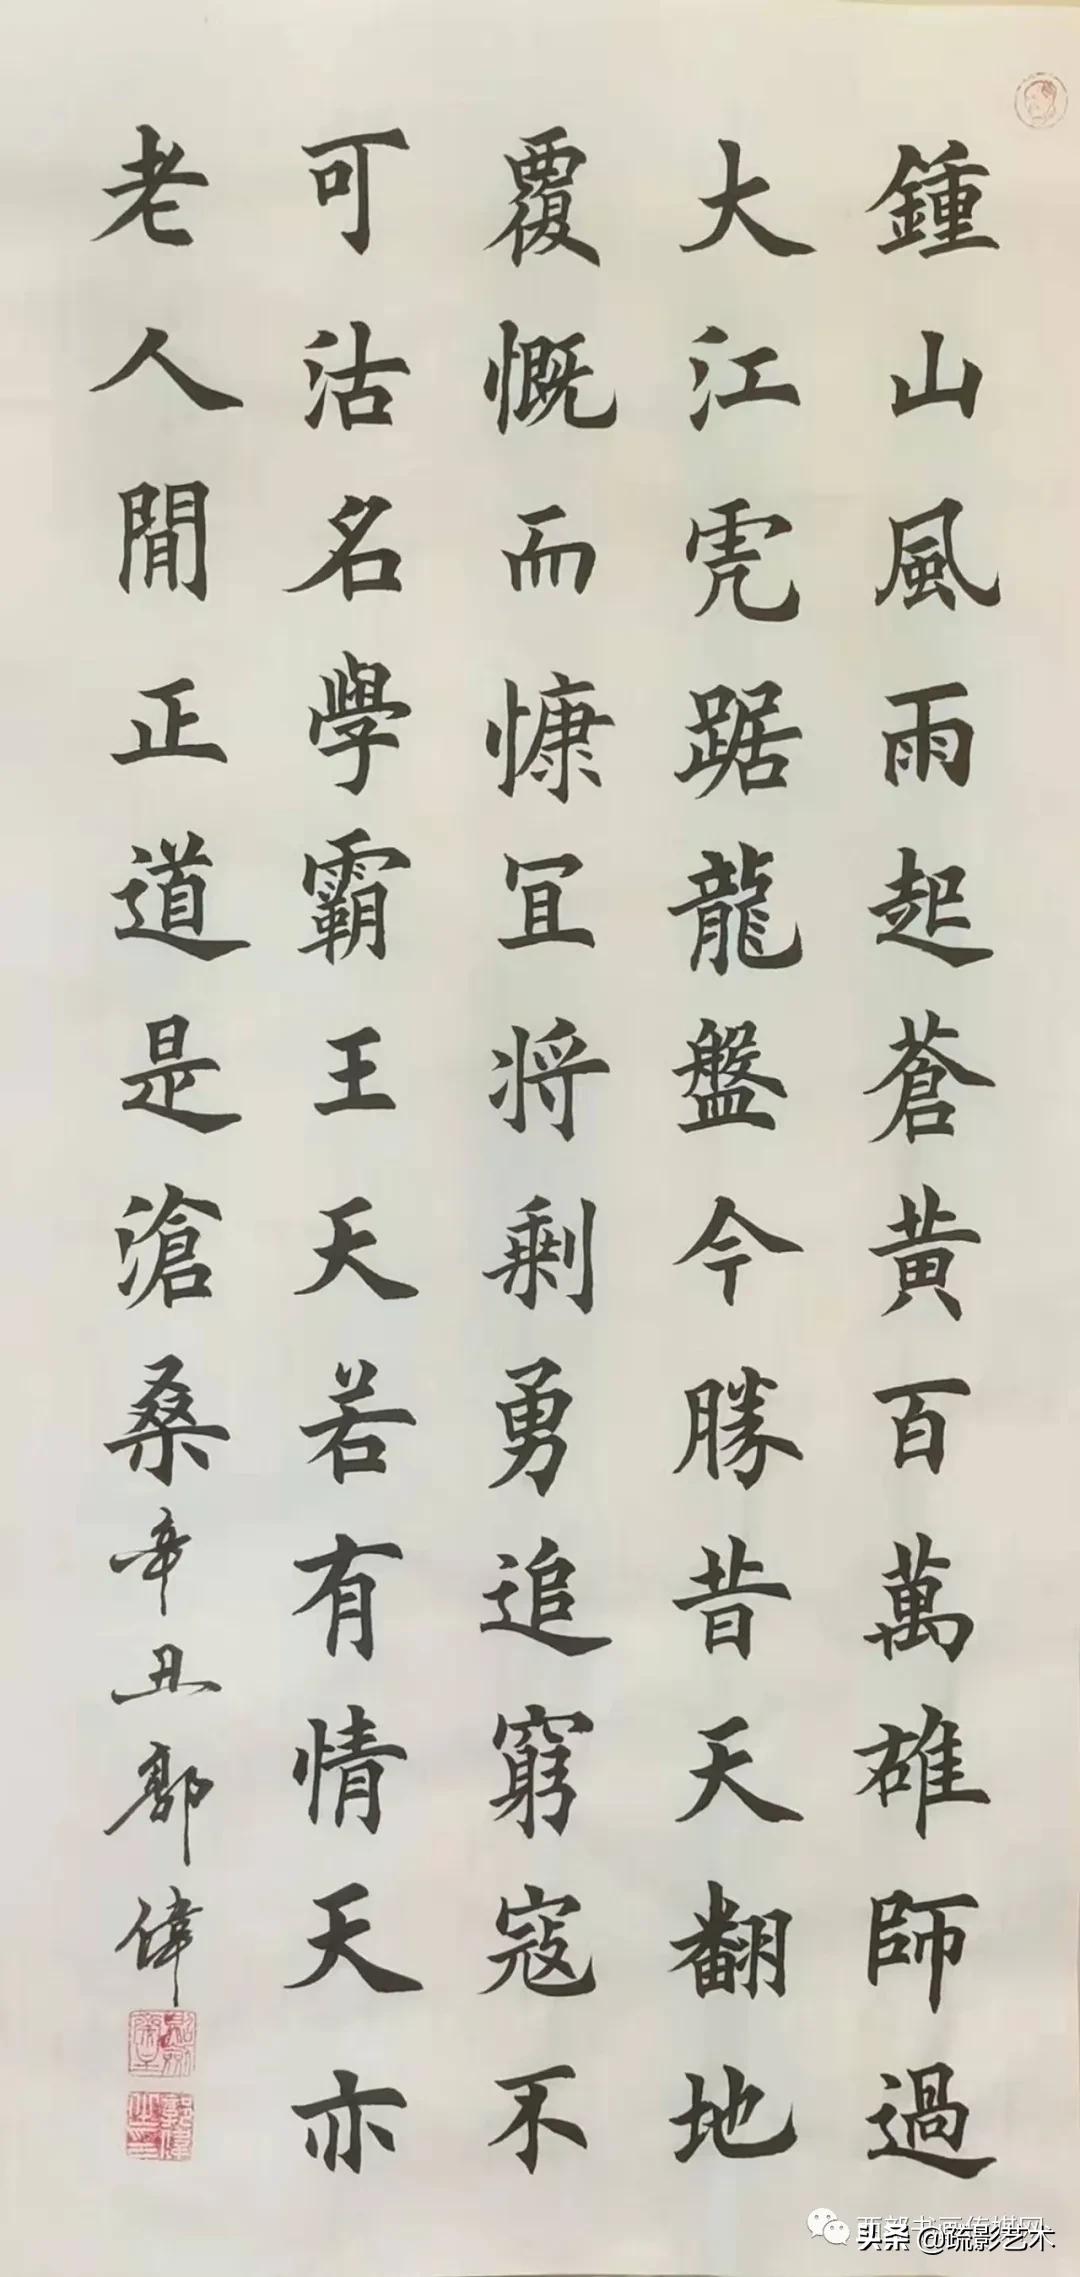 鍾山風雨起蒼黃百萬雄師過
大江虎踞龍盤今勝昔天翻地
覆慨而慷冝将剩勇追窮寇不
可沽名學霸王天若有情天亦
老人閒正道是滄桑
辛丑郭偉
郭偉之印
西部书画传媒网
头条 @疏影艺术